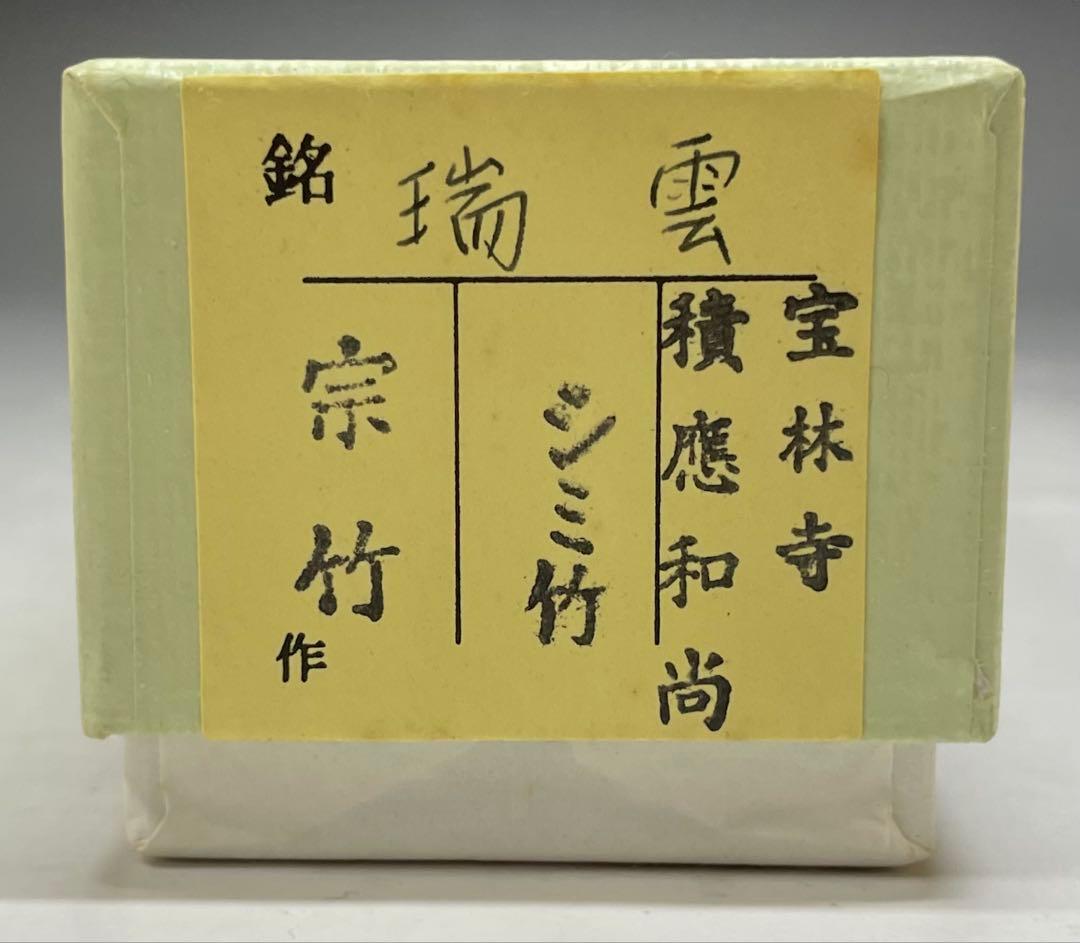 銘 瑞雲
宝林寺
積應和尚
シミ竹
宗竹作